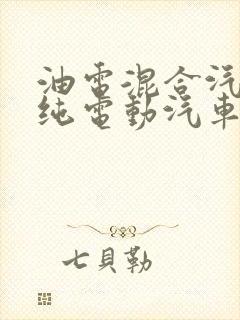 油電混合汽
純電動汽車
七貝勒